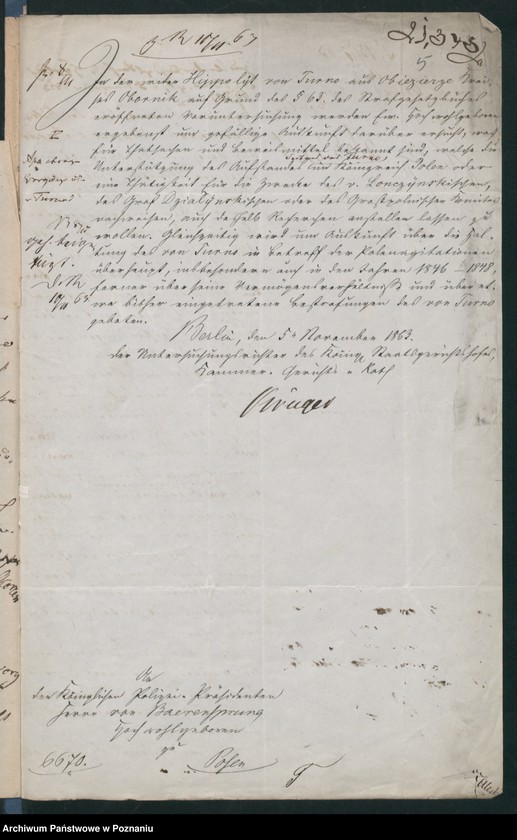 21,343
5
pr 8/11
In der wider Hippolyt von Turno aus Obiezierze Krei-
ses Obornik auf Grund des § 63. des Strafgesetzbuches
eröffneten Voruntersuchung werden Ew. Hochwohlgeboren
ergebenst um gefällige Auskunft darüber ersucht, was
für Thatsachen und Beweismittel bekannt sind, welche die
Seitens des Turno
Unterstützung des Aufstandes im Königreich Polen oder
eine Thätigkeit für die Zwecke des v. Lonczynskischen,
des Graf Dzialynskischen oder des Großpolnischen Comites
nachweisen, auch deshalb Recherchen anstellen lassen zu
wollen. Gleichzeitig wird um Auskunft über die Hal-
tung des von Turno in Betreff der Polenagitationen
überhaupt, insbesondere auch in den Jahren 1846 - 1848,
ferner über seine Vermögensverhältnisse und über et-
wa bisher eingetretene Bestrafungen des von Turno
gebeten.
Berlin, den 5t November 1863.
Der Untersuchungsrichter des Königl. Staatsgerichtshofes,
Kammer-Gerichts-Rath
Krüger
An
den Königlichen Polizei-Präsidenten
Herrn von Baerensprung
Hochwohlgeboren
zu
Posen
6670.
Archiwum Państwowe w Poznaniu